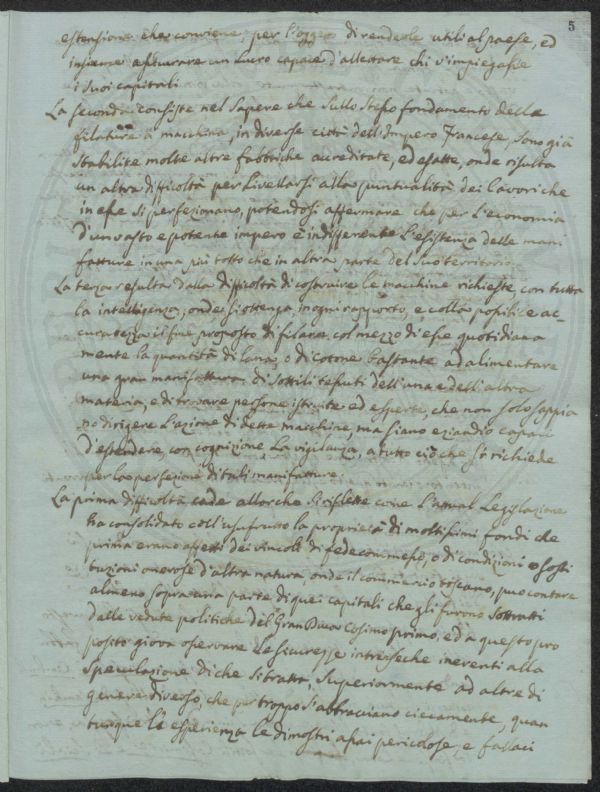 5
estensione che conviene, per l'oggetto di renderle utili al paese, ed
insieme assicurare un lucro capace d'allettare chi v'impiegasse
i suoi capitali
La seconda consiste nel sapere che sullo stesso fondamento delle
filature a macchina, in diverse città dell'Impero Francese, sono già
stabilite molte altre fabbriche accreditate, ed esatte, onde risulta
un altra difficoltà per livellarsi alla puntualità dei lavori che
in esse si perfezionano, potendosi affermare che per l'economia
d'un vasto e potente impero è indifferente l'esistenza delle mani
fatture in una più tosto che in altra parte del suo territorio
La terza resulta dalla difficoltà di costruire le macchine richieste con tutta
la intelligenza, onde si ottenga in ogni rapporto, e colla possibile ac-
curatezza il fine proposto di filare col mezzo di esse quotidiana
mente la quantità di lana, o di cotone bastante ad alimentare
una gran manifattura di sottili tessuti dell'una e dell'altra
materia, e di trovare persone istruite ed esperte, che non solo sappia
no dirigere l'azione di dette macchine, ma siano eziandio capaci
d'estendere, con cognizione, la vigilanza, a tutto ciò che si richiede
per la perfezione di tali manifatture.
La prima difficoltà cade allorche si riflette come l'attual Legislazione
ha consolidato coll'usufrutto la proprietà di moltissimi fondi che
prima erano affetti dei vincoli di fedecommesse, o di condizioni e sosti
tuzioni onerose d'altra natura, onde il commercio toscano, può contare
almeno sopra una parte di quei capitali che gli furono sottratti
dalle vedute politiche del Gran Duca Cosimo primo, ed a questo pro
posito giova osservare le sicurezze intrinseche inerenti alla
speculazione di che si tratta, superiormente ad altre di
genere diverso, che pur troppo si abbracciano ciecamente, quan
tunque la esperienza le dimostri assai pericolose, e fallaci